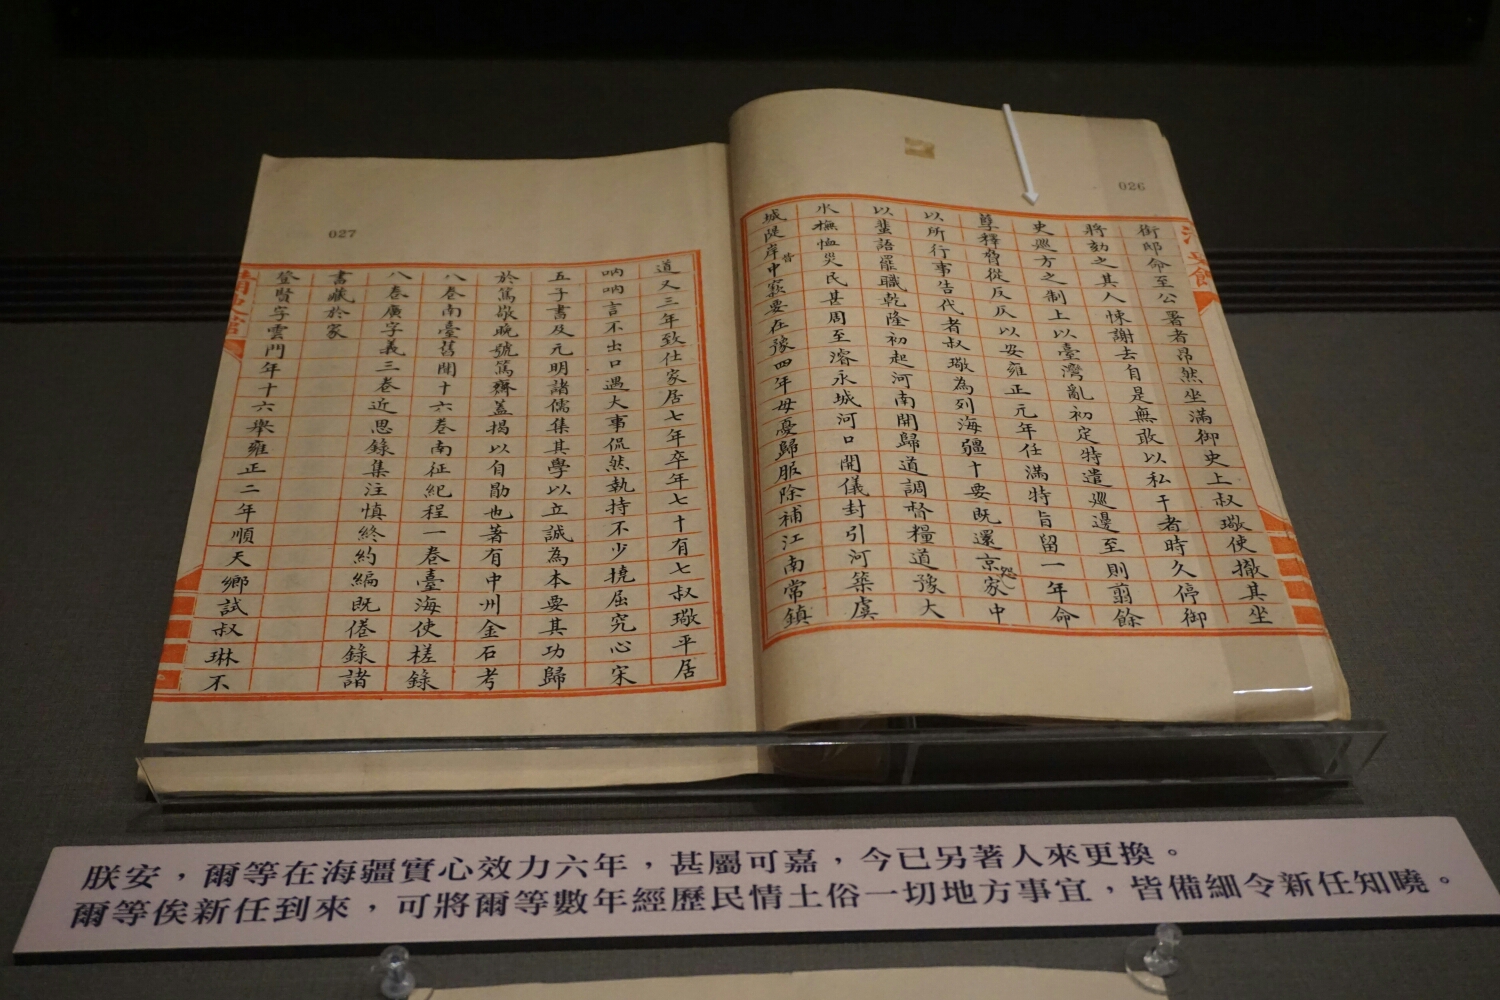 026
清史館
銜邸命至公署者昂然坐滿御史上叔璥使撤其坐
將劾之其人悚謝去自是無敢以私干者時久停御
史巡方之制上以臺灣亂初定特遣巡邊至則翦餘
孽釋脅從反仄以安雍正元年任滿特旨留一年命
以所行事告代者叔璥為列海疆十要既還京家中
以蜚語罷職乾隆初起河南開歸道調督糧道豫大
水撫恤災民甚周至濬永城河口開儀封引河築虞
城隄岸皆中窾要在豫四年母憂歸服除補江南常鎮
027
道又三年致仕家居七年卒年七十有七叔璥平居
吶吶言不出口遇大事侃然執持不少撓屈究心宋
五子書及元明諸儒集其學以立誠為本要其功歸
於篤敬晚號篤齋蓋揭以自勖也著有中州金石考
八卷南臺舊聞十六卷南征紀程一卷臺海使槎錄
八卷廣字義三卷近思錄集注慎終約編既倦錄諸
書藏於家
登賢字雲門年十六舉雍正二年順天鄉試叔琳不
清史館
朕安，爾等在海疆實心效力六年，甚屬可嘉，今已另著人來更換。
爾等俟新任到來，可將爾等數年經歷民情土俗一切地方事宜，皆備細令新任知曉。